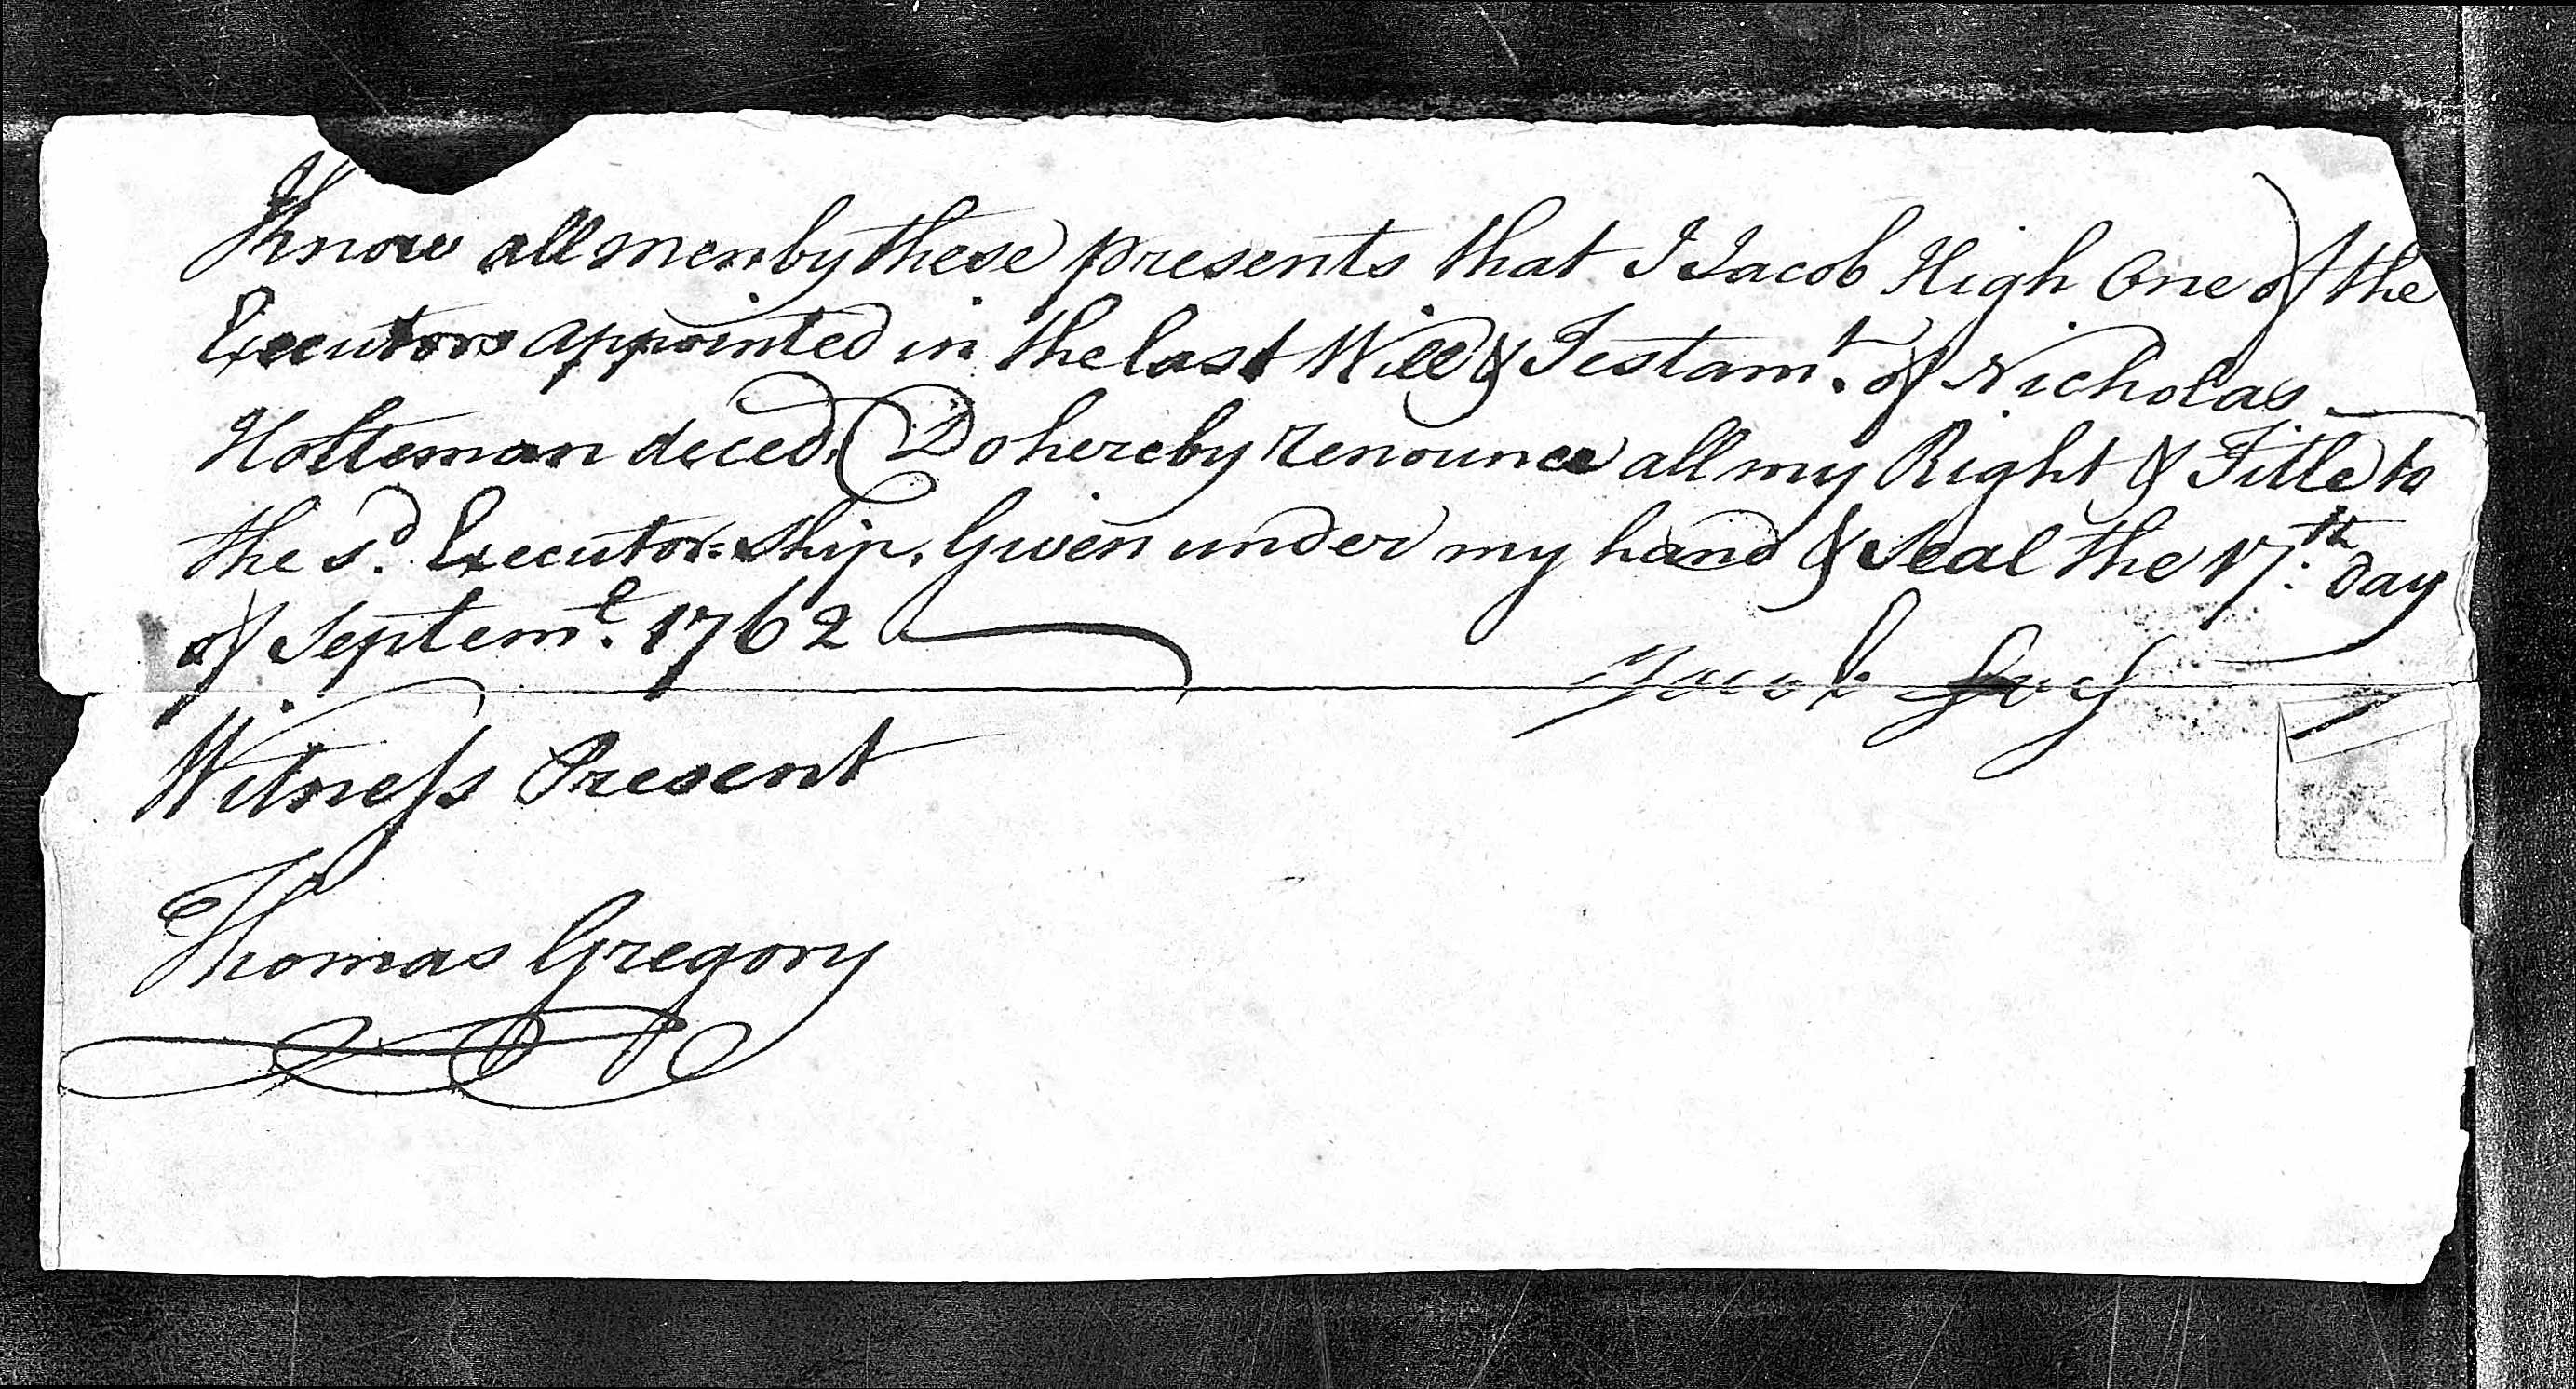 Know all men by these presents that I Jacob High One of the
Executors appointed in the last Will & Testam.t of Nicholas
Holteman deced. Do hereby renounce all my Right & Title to
the s.d Executor=ship, Given under my hand & Seal the 17.th day
of Septem.r 1762
Jacob
Witness Present
Thomas Gregory